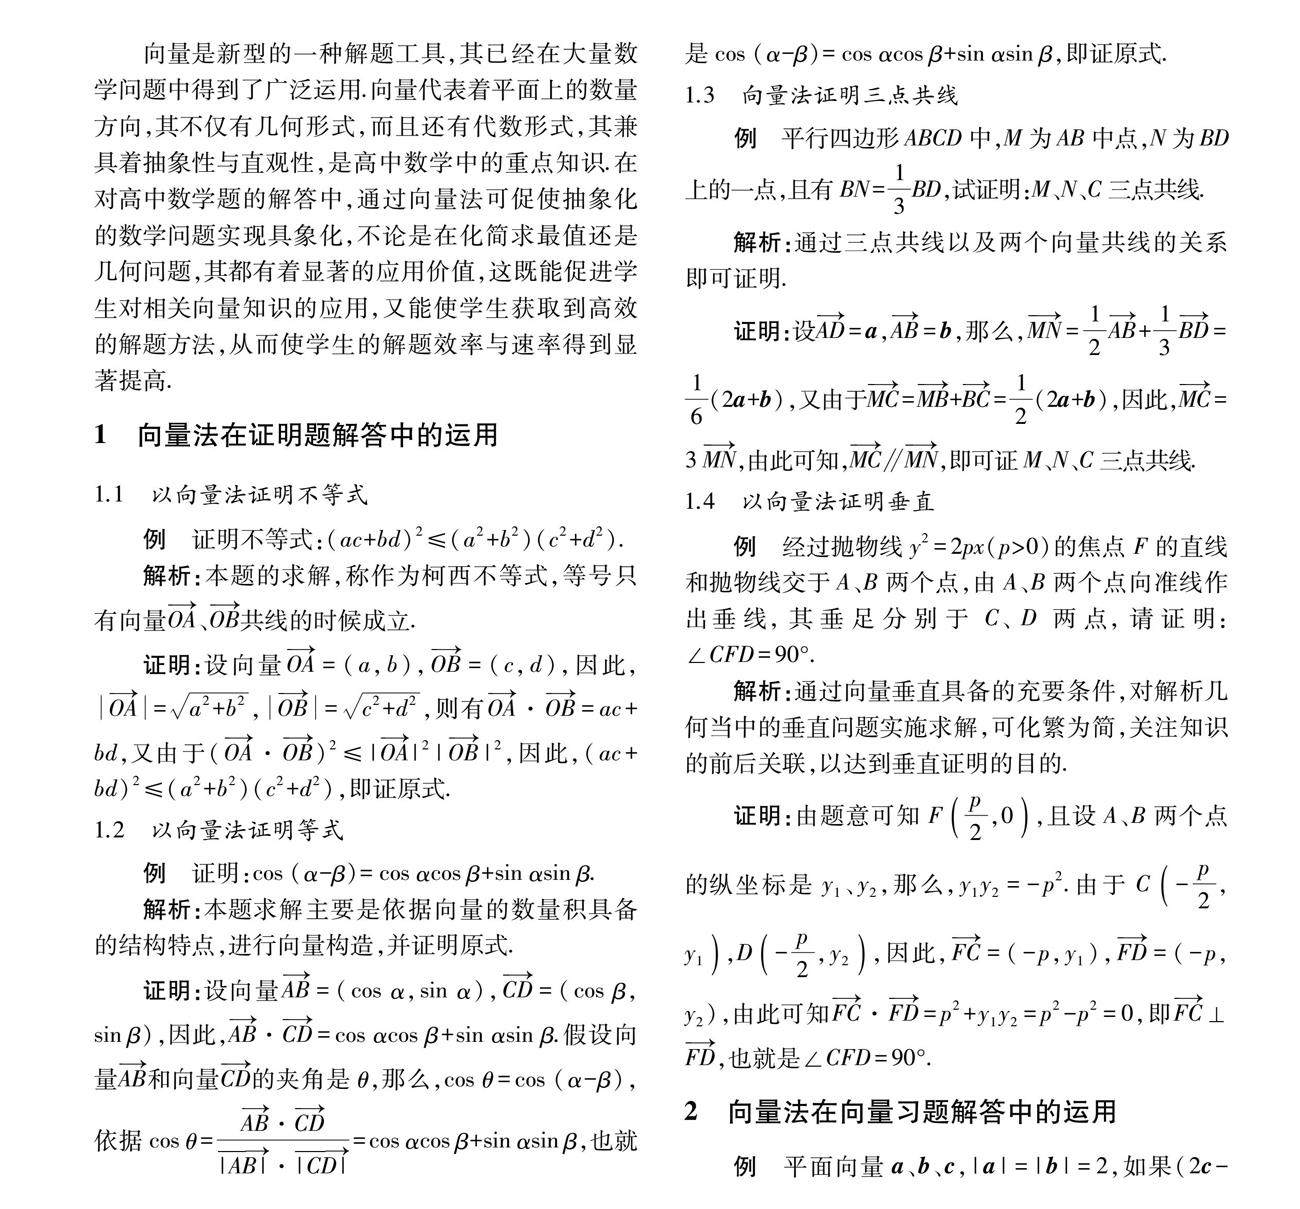 向量是新型的一种解题工具,其已经在大量数
学问题中得到了广泛运用.向量代表着平面上的数量
方向,其不仅有几何形式,而且还有代数形式,其兼
具着抽象性与直观性,是高中数学中的重点知识.在
对高中数学题的解答中,通过向量法可促使抽象化
的数学问题实现具象化,不论是在化简求最值还是
几何问题,其都有着显著的应用价值,这既能促进学
生对相关向量知识的应用,又能使学生获取到高效
的解题方法,从而使学生的解题效率与速率得到显
著提高.
1 向量法在证明题解答中的运用
1.1 以向量法证明不等式
例 证明不等式:(ac+bd)²≤(a²+b²)(c²+d²).
解析:本题的求解,称作为柯西不等式,等号只
有向量$\overrightarrow{OA}$、$\overrightarrow{OB}$共线的时候成立.
证明:设向量$\overrightarrow{OA}$=(a,b),$\overrightarrow{OB}$=(c,d),因此,
|$\overrightarrow{OA}$|=$\sqrt{a^2+b^2}$,|$\overrightarrow{OB}$|=$\sqrt{c^2+d^2}$,则有$\overrightarrow{OA}$·$\overrightarrow{OB}$=ac+
bd,又由于($\overrightarrow{OA}$·$\overrightarrow{OB}$)²≤|$\overrightarrow{OA}$|²|$\overrightarrow{OB}$|²,因此,(ac+
bd)²≤(a²+b²)(c²+d²),即证原式.
1.2 以向量法证明等式
例 证明:cos (α-β)= cos αcos β+sin αsin β.
解析:本题求解主要是依据向量的数量积具备
的结构特点,进行向量构造,并证明原式.
证明:设向量$\overrightarrow{AB}$=(cos α,sin α),$\overrightarrow{CD}$=(cos β,
sin β),因此,$\overrightarrow{AB}$·$\overrightarrow{CD}$=cos αcos β+sin αsin β.假设向
量$\overrightarrow{AB}$和向量$\overrightarrow{CD}$的夹角是 θ,那么,cos θ=cos (α-β),
依据 cos θ=$\frac{\overrightarrow{AB}·\overrightarrow{CD}}{|\overrightarrow{AB}|·|\overrightarrow{CD}|}$=cos αcos β+sin αsin β,也就
是 cos (α-β)= cos αcos β+sin αsin β,即证原式.
1.3 向量法证明三点共线
例 平行四边形 ABCD 中,M 为 AB 中点,N 为 BD
上的一点,且有 BN=$\frac{1}{3}$BD,试证明:M、N、C 三点共线.
解析:通过三点共线以及两个向量共线的关系
即可证明.
证明:设$\overrightarrow{AD}$=a,$\overrightarrow{AB}$=b,那么,$\overrightarrow{MN}$=$\frac{1}{2}\overrightarrow{AB}$+$\frac{1}{3}\overrightarrow{BD}$=
$\frac{1}{6}$(2a+b),又由于$\overrightarrow{MC}$=$\overrightarrow{MB}$+$\overrightarrow{BC}$=$\frac{1}{2}$(2a+b),因此,$\overrightarrow{MC}$=
3$\overrightarrow{MN}$,由此可知,$\overrightarrow{MC}$∥$\overrightarrow{MN}$,即可证 M、N、C 三点共线.
1.4 以向量法证明垂直
例 经过抛物线 y²=2px(p>0)的焦点 F 的直线
和抛物线交于 A、B 两个点,由 A、B 两个点向准线作
出垂线,其垂足分别于 C、D 两点,请证明:
∠CFD=90°.
解析:通过向量垂直具备的充要条件,对解析几
何当中的垂直问题实施求解,可化繁为简,关注知识
的前后关联,以达到垂直证明的目的.
证明:由题意可知 F($\frac{p}{2}$,0),且设 A、B 两个点
的纵坐标是 y₁、y₂,那么,y₁y₂=-p².由于 C(-$\frac{p}{2}$,
y₁),D(-$\frac{p}{2}$,y₂),因此,$\overrightarrow{FC}$=(-p,y₁),$\overrightarrow{FD}$=(-p,
y₂),由此可知$\overrightarrow{FC}$·$\overrightarrow{FD}$=p²+y₁y₂=p²-p²=0,即$\overrightarrow{FC}$⊥
$\overrightarrow{FD}$,也就是∠CFD=90°.
2 向量法在向量习题解答中的运用
例 平面向量 a、b、c,|a|=|b|=2,如果(2c-